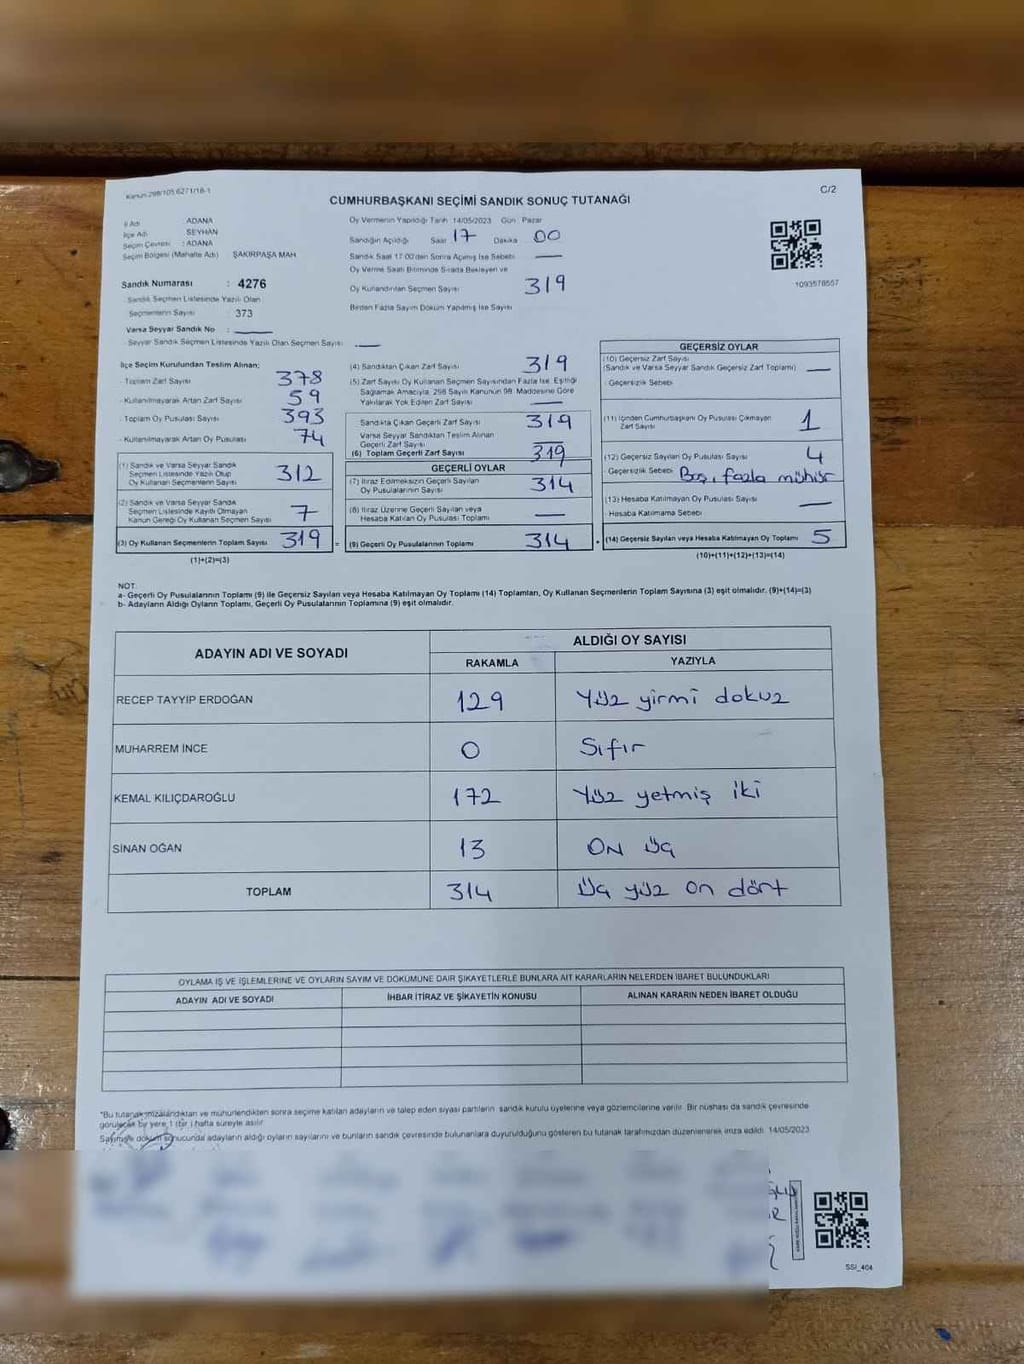 Kanun 298/105,6271/18-1
C/2
CUMHURBAŞKANI SEÇİMİ SANDIK SONUÇ TUTANAĞI
İl Adı ADANA
İlçe Adı SEYHAN
Seçim Çevresi : ADANA
Seçim Bölgesi (Mahalle Adı) ŞAKİRPAŞA MAH
Sandık Numarası : 4276
Sandık Seçmen Listesinde Yazılı Olan
Seçmenlerin Sayısı : 373
Varsa Seyyar Sandık No :
Seyyar Sandık Seçmen Listesinde Yazılı Olan Seçmen Sayısı :
Oy Vermenin Yapıldığı Tarih 14/05/2023 Gün Pazar
Sandığın Açıldığı Saat 17 Dakika 00
Sandık Saat 17.00'den Sonra Açılmış İse Sebebi
Oy Verme Saati Bitiminde Sırada Bekleyen ve
Oy Kullandırılan Seçmen Sayısı 319
Birden Fazla Sayım Döküm Yapılmış İse Sayısı
1093578557
İlçe Seçim Kurulundan Teslim Alınan;
- Toplam Zarf Sayısı 378
- Kullanılmayarak Artan Zarf Sayısı 59
- Toplam Oy Pusulası Sayısı 393
- Kullanılmayarak Artan Oy Pusulası 74
(1) Sandık ve Varsa Seyyar Sandık
Seçmen Listesinde Yazılı Olup
Oy Kullanan Seçmenlerin Sayısı 312
(2) Sandık ve Varsa Seyyar Sandık
Seçmen Listesinde Kayıtlı Olmayan
Kanun Gereği Oy Kullanan Seçmen Sayısı 7
(3) Oy Kullanan Seçmenlerin Toplam Sayısı 319 =
(1)+(2)=(3)
(4) Sandıktan Çıkan Zarf Sayısı 319
(5) Zarf Sayısı Oy Kullanan Seçmen Sayısından Fazla İse, Eşitliği
Sağlamak Amacıyla, 298 Sayılı Kanunun 98. Maddesine Göre
Yakılarak Yok Edilen Zarf Sayısı
Sandıkta Çıkan Geçerli Zarf Sayısı 319
Varsa Seyyar Sandıktan Teslim Alınan
Geçerli Zarf Sayısı
(6) Toplam Geçerli Zarf Sayısı 319
GEÇERLİ OYLAR
(7) İtiraz Edilmeksizin Geçerli Sayılan
Oy Pusulalarının Sayısı 314
(8) İtiraz Üzerine Geçerli Sayılan veya
Hesaba Katılan Oy Pusulası Toplamı
(9) Geçerli Oy Pusulalarının Toplamı 314
GEÇERSİZ OYLAR
(10) Geçersiz Zarf Sayısı
(Sandık ve Varsa Seyyar Sandık Geçersiz Zarf Toplamı)
- Geçersizlik Sebebi
(11) İçinden Cumhurbaşkanı Oy Pusulası Çıkmayan
Zarf Sayısı 1
(12) Geçersiz Sayılan Oy Pusulası Sayısı 4
- Geçersizlik Sebebi Boş, fazla mühür
(13) Hesaba Katılmayan Oy Pusulası Sayısı
- Hesaba Katılmama Sebebi
+ (14) Geçersiz Sayılan veya Hesaba Katılmayan Oy Toplamı 5
(10)+(11)+(12)+(13)=(14)
NOT:
a- Geçerli Oy Pusulalarının Toplamı (9) ile Geçersiz Sayılan veya Hesaba Katılmayan Oy Toplamı (14) Toplamları, Oy Kullanan Seçmenlerin Toplam Sayısına (3) eşit olmalıdır. (9)+(14)=(3)
b- Adayların Aldığı Oyların Toplamı, Geçerli Oy Pusulalarının Toplamına (9) eşit olmalıdır.
ADAYIN ADI VE SOYADI ALDIĞI OY SAYISI
RAKAMLA YAZIYLA
RECEP TAYYIP ERDOĞAN 129 Yüz yirmi dokuz
MUHARREM İNCE 0 Sıfır
KEMAL KILIÇDAROĞLU 172 Yüz yetmiş iki
SİNAN OĞAN 13 ON Üç
TOPLAM 314 Üç yüz on dört
OYLAMA İŞ VE İŞLEMLERİNE VE OYLARIN SAYIM VE DÖKÜMÜNE DAİR ŞİKAYETLERLE BUNLARA AİT KARARLARIN NELERDEN İBARET BULUNDUKLARI
ADAYIN ADI VE SOYADI İHBAR İTİRAZ VE ŞİKAYETİN KONUSU ALINAN KARARIN NEDEN İBARET OLDUĞU
*Bu tutanak imzalandıktan ve mühürlendikten sonra seçime katılan adayların ve talep eden siyasi partilerin sandık kurulu üyelerine veya gözlemcilerine verilir. Bir nüshası da sandık çevresinde
görülecek bir yere 1 (bir) hafta süreyle asılır
Sayım ve döküm sonucunda adayların aldığı oyların sayılarını ve bunların sandık çevresinde bulunanlara duyurulduğunu gösteren bu tutanak tarafımızdan düzenlenerek imza edildi. 14/05/2023
SSI_404